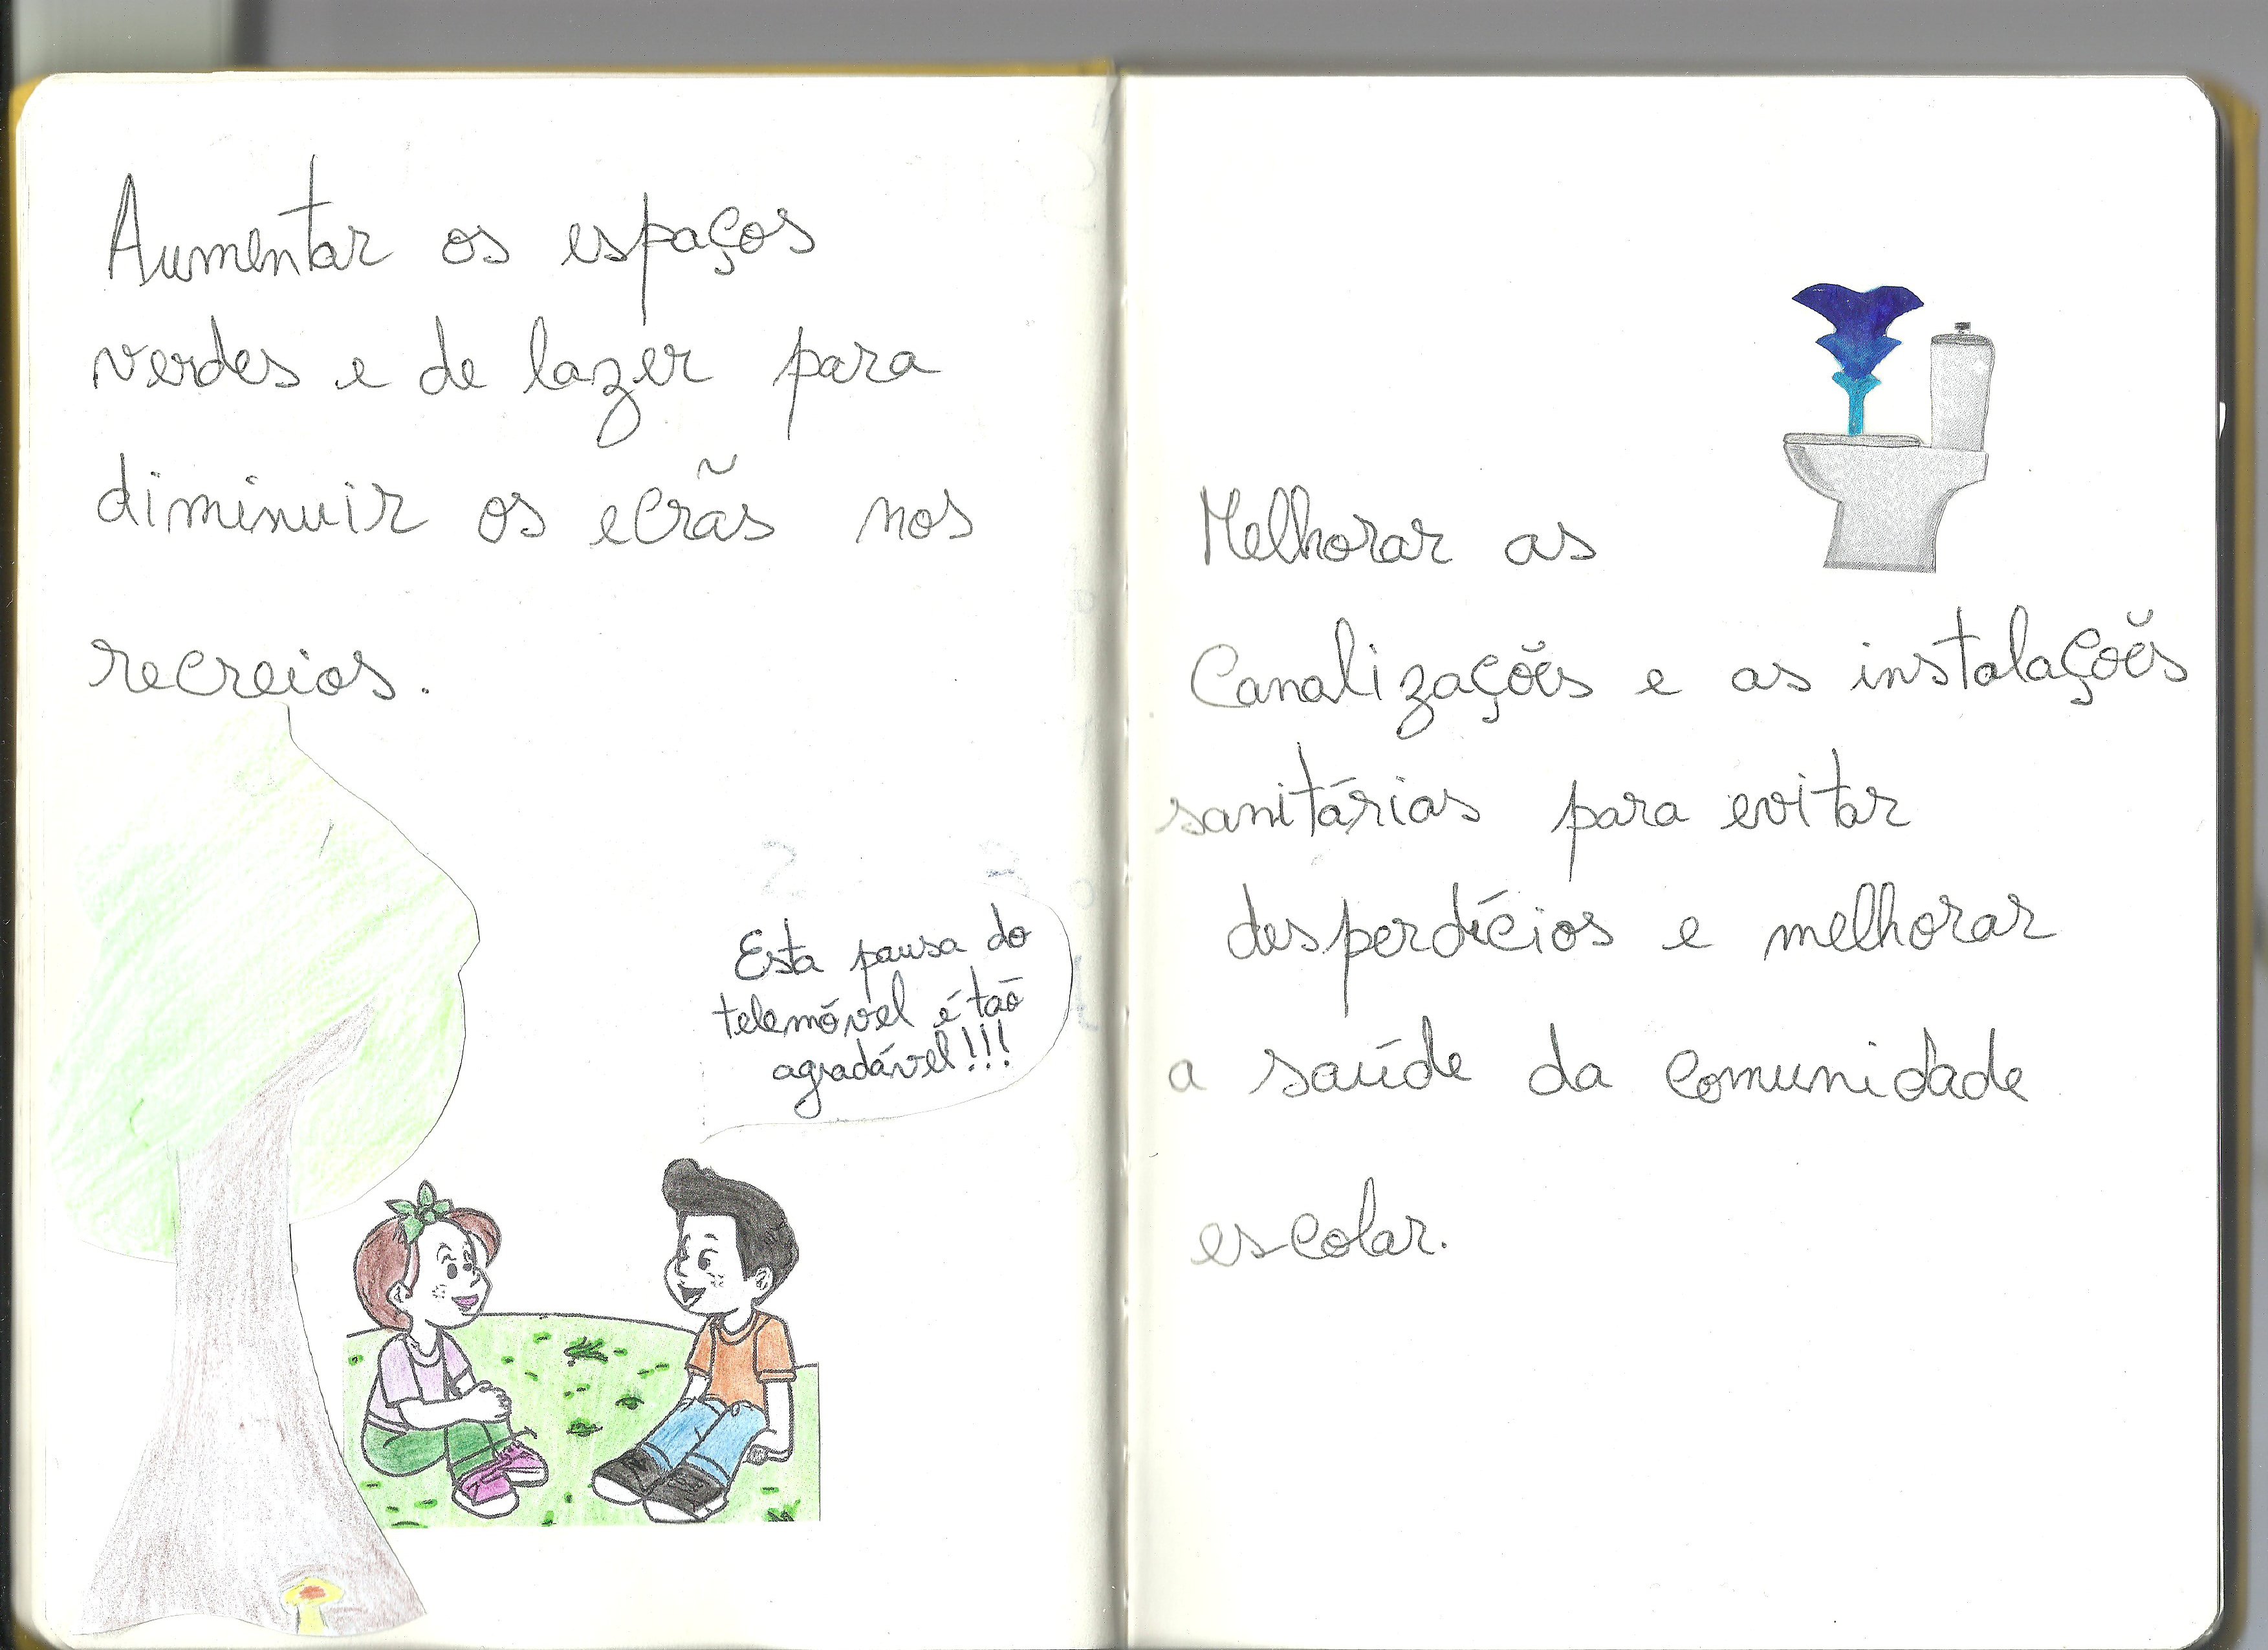 Aumentar os espaços
verdes e de lazer para
diminuir os ecrãs nos
recreios.
Esta pausa do
telemóvel é tão
agradável!!!
Melhorar as
Canalizações e as instalações
sanitárias para evitar
desperdícios e melhorar
a saúde da comunidade
escolar.